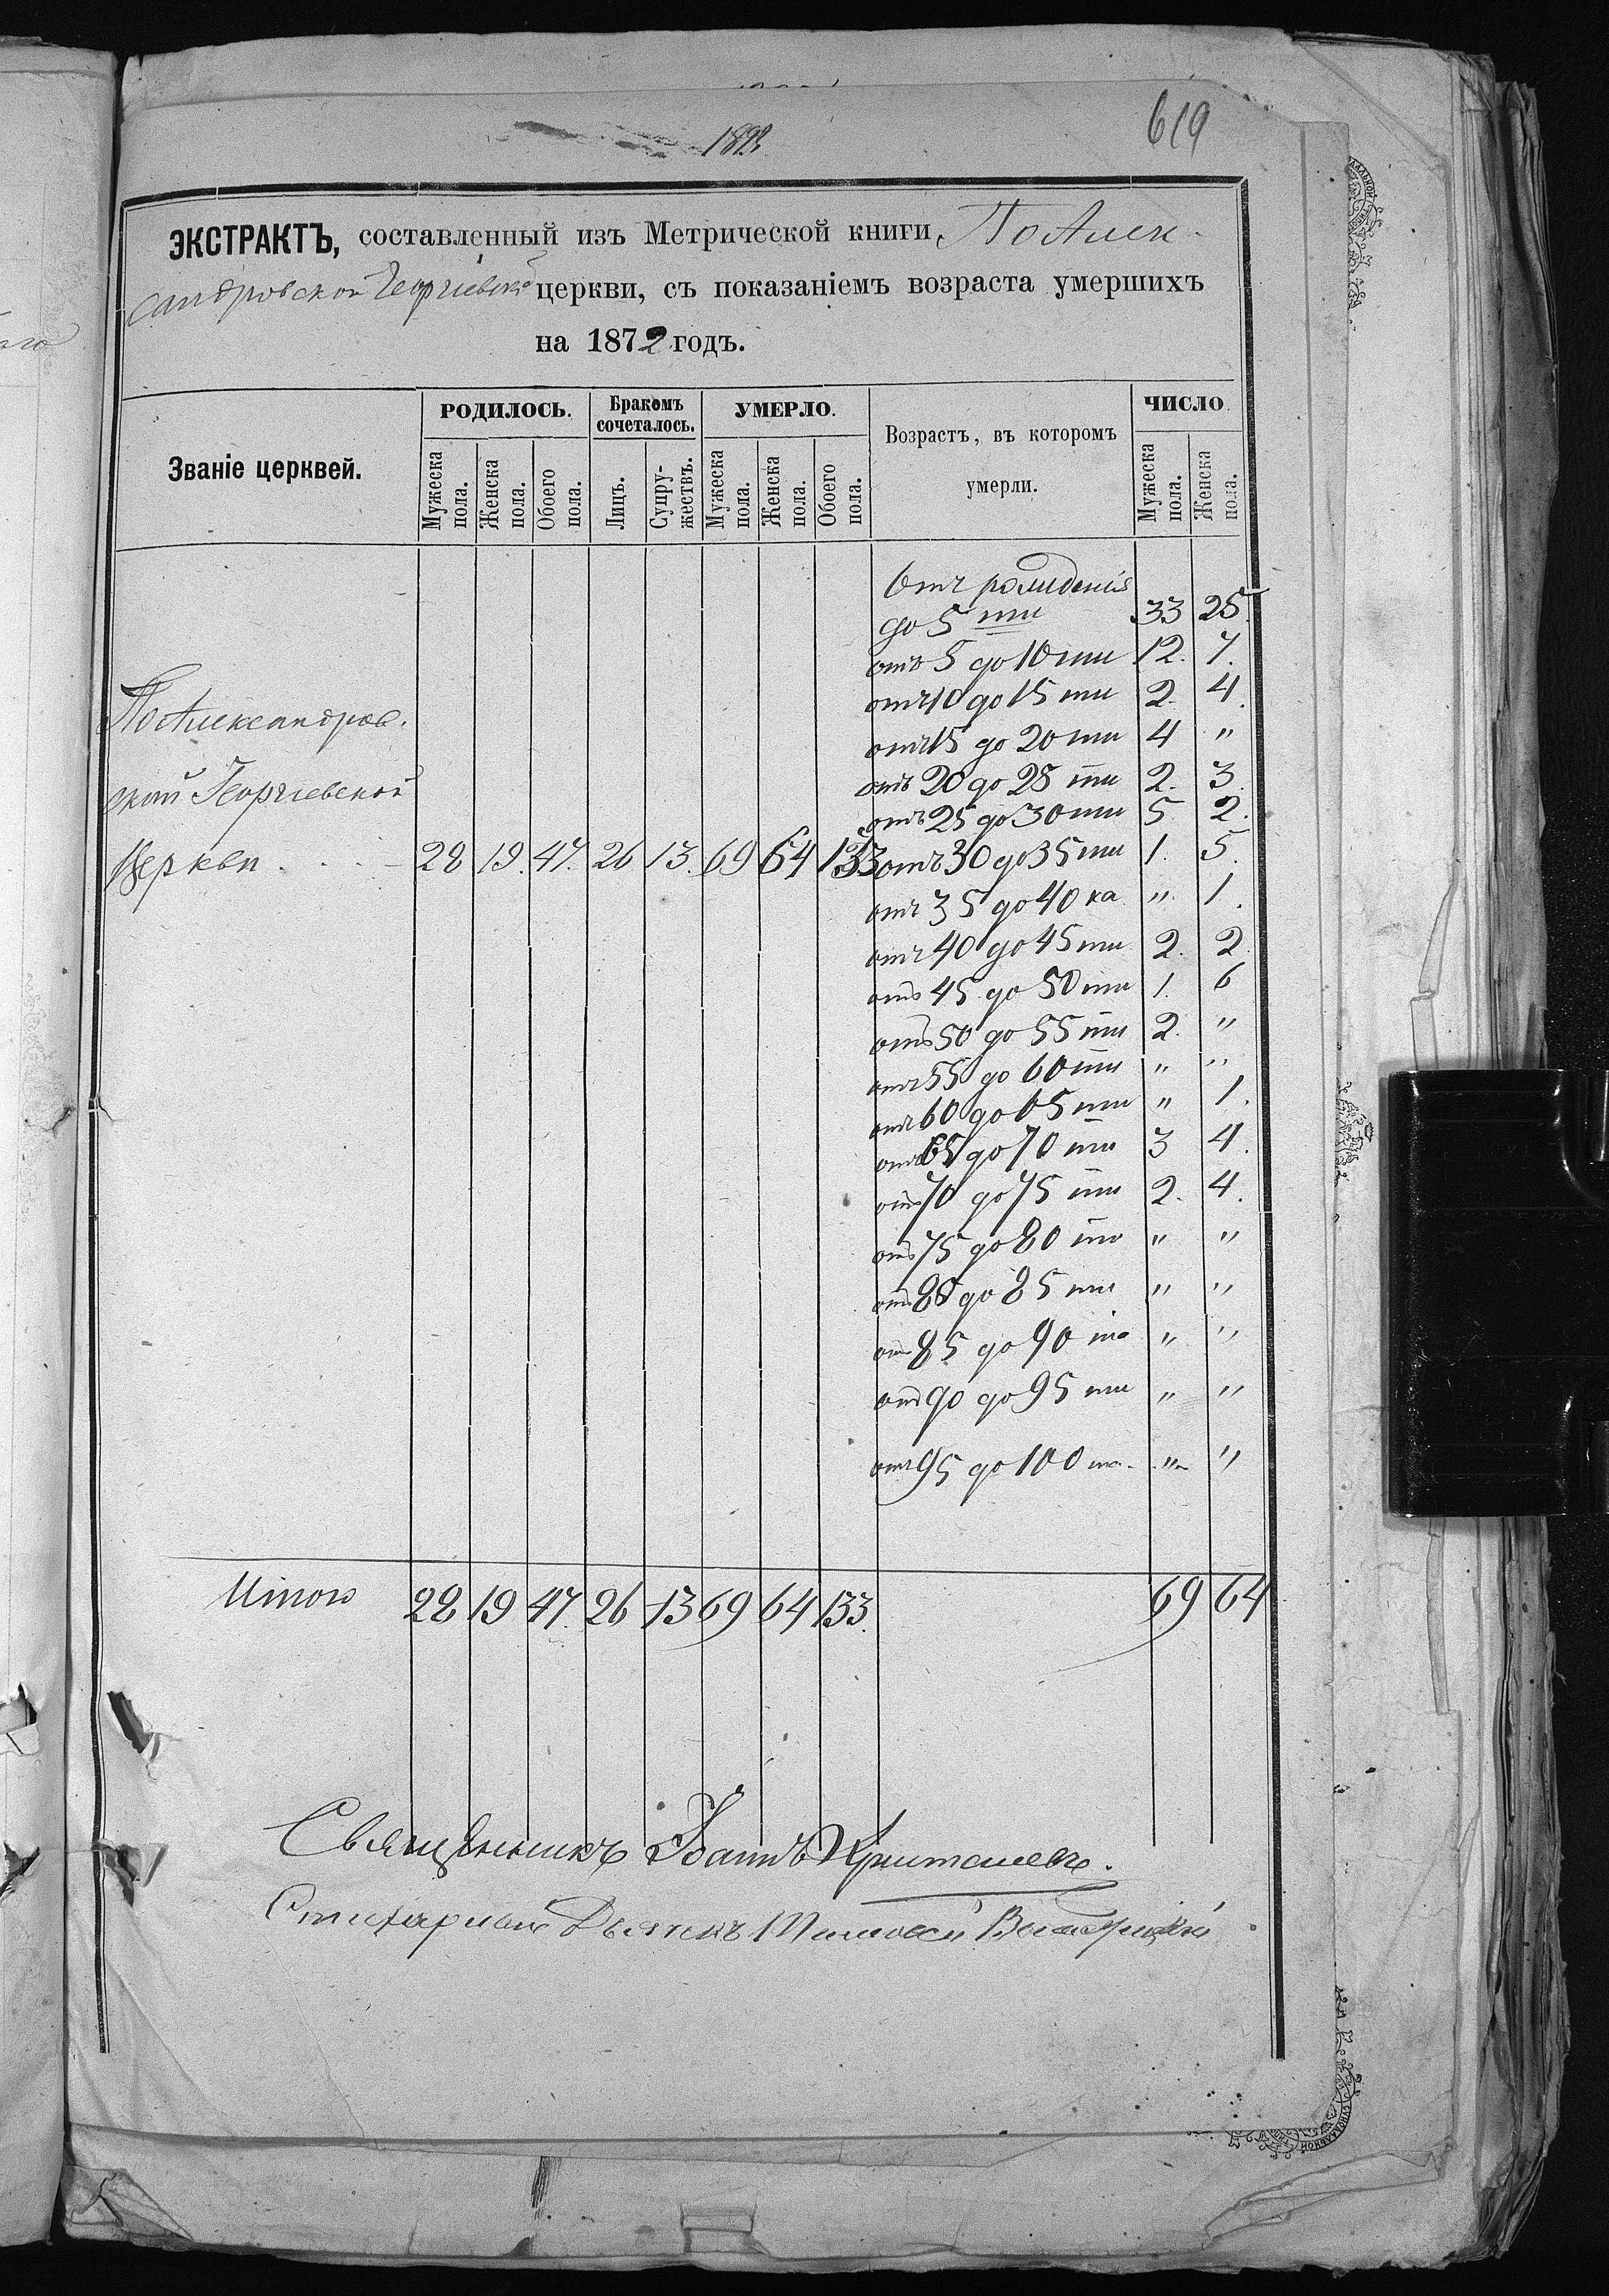 619
ЭКСТРАКТЪ, составленный изъ Метрической книги, По Алек-
сандровской Георгіевской церкви, съ показаніемъ возраста умершихъ
на 1872 годъ.
Званіе церквей.
РОДИЛОСЬ.
Мужеска пола.
Женска пола.
Обоего пола.
Бракомъ сочеталось.
Лицъ.
Супружествъ.
УМЕРЛО.
Мужеска пола.
Женска пола.
Обоего пола.
Возрастъ, въ которомъ умерли.
ЧИСЛО
Мужеска пола.
Женска пола.
Отъ рожденія
до 5 ти 33 25.
отъ 5 до 10 ти 12. 7.
отъ 10 до 15 ти 2. 4.
По Александров.
отъ 15 до 20 ти 4 "
ской Георгіевской
отъ 20 до 25 ти 2. 3.
отъ 25 до 30 ти 5 2.
Церкви 28 19. 47. 26 13. 69 64 133 отъ 30 до 35 ти 1. 5.
отъ 35 до 40 ка " 1.
отъ 40 до 45 ти 2. 2
отъ 45 до 50 ти 1. 6
отъ 50 до 55 ти 2. "
отъ 55 до 60 ти " "
отъ 60 до 65 ти " 1.
отъ 65 до 70 ти 3 4.
отъ 70 до 75 ти 2. 4.
отъ 75 до 80 ти " "
отъ 80 до 85 ти " "
отъ 85 до 90 та " "
отъ 90 до 95 ти " "
отъ 95 до 100 та. " "
Итого 28 19 47. 26 13 69 64 133. 69 64
Священникъ Іоаннъ
Стихарный Дьячекъ